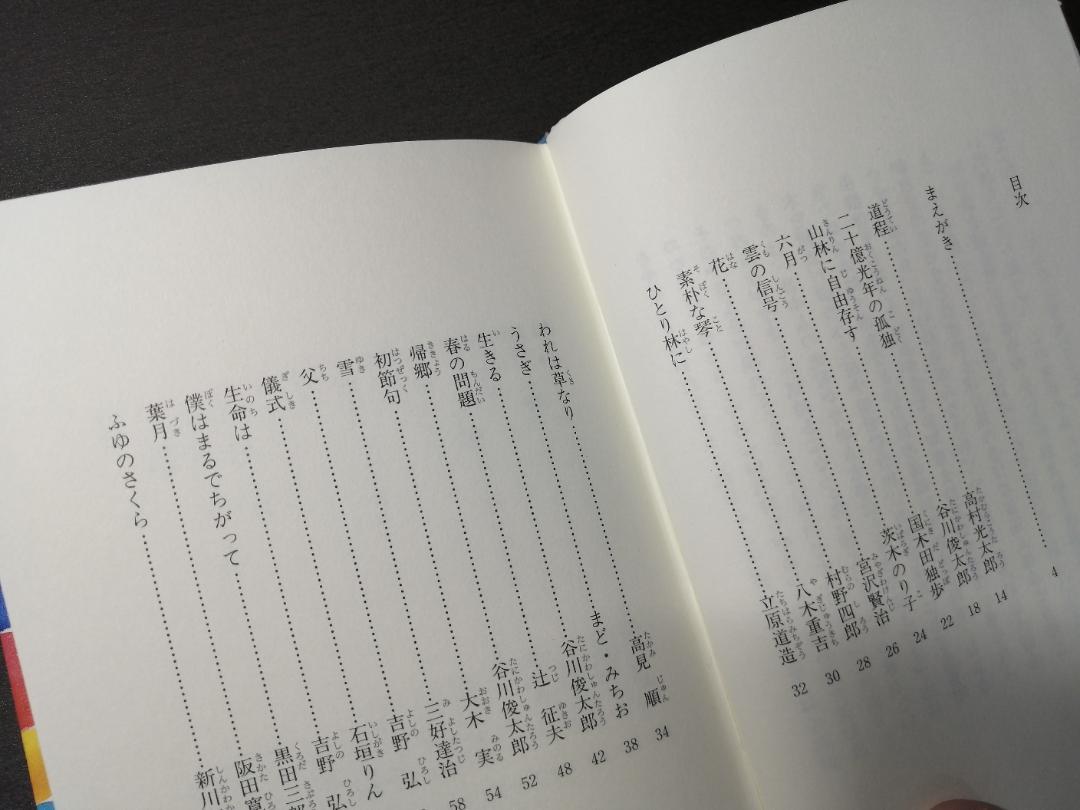 目次
まえがき……4
道程……高村光太郎 14
二十億光年の孤独……谷川俊太郎 18
山林に自由存す……国木田独歩 22
六月……茨木のり子 24
雲の信号……宮沢賢治 26
花……村野四郎 28
素朴な琴……八木重吉 30
ひとり林に……立原道造 32
われは草なり……高見 順 34
うさぎ……まど・みちお 38
生きる……谷川俊太郎 42
春の問題……辻 征夫 48
帰郷……谷川俊太郎 52
初節句……大木 実 54
雪……三好達治 58
父……吉野 弘
儀式……石垣りん
生命は……吉野 弘
僕はまるでちがって……黒田三郎
葉月……阪田寛
ふゆのさくら……新川